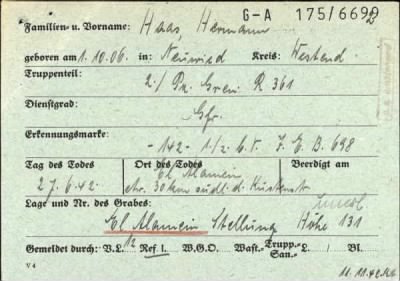 G-A 175/6692
Familien- u. Vorname: Haas, Hermann
geboren am 1.10.06. in: Neuwied Kreis: Westend.
Truppenteil:
2./ Pz. Gren. R 361
Dienstgrad:
Gfr.
Erkennungsmarke:
-142- 1/2 b.V. J. E. B. 698
Tag des Todes Ort des Todes Beerdigt am
27.6.42. El Alamein
etr. 30 km südl. d. Küstenstr.
Lage und Nr. des Grabes:
El Alamein Stellung Höhe 131
Gemeldet durch: V.L. 12 Ref I. W.G.O. Wast.- Trupp.- L. / Bl.
San.-
V 4